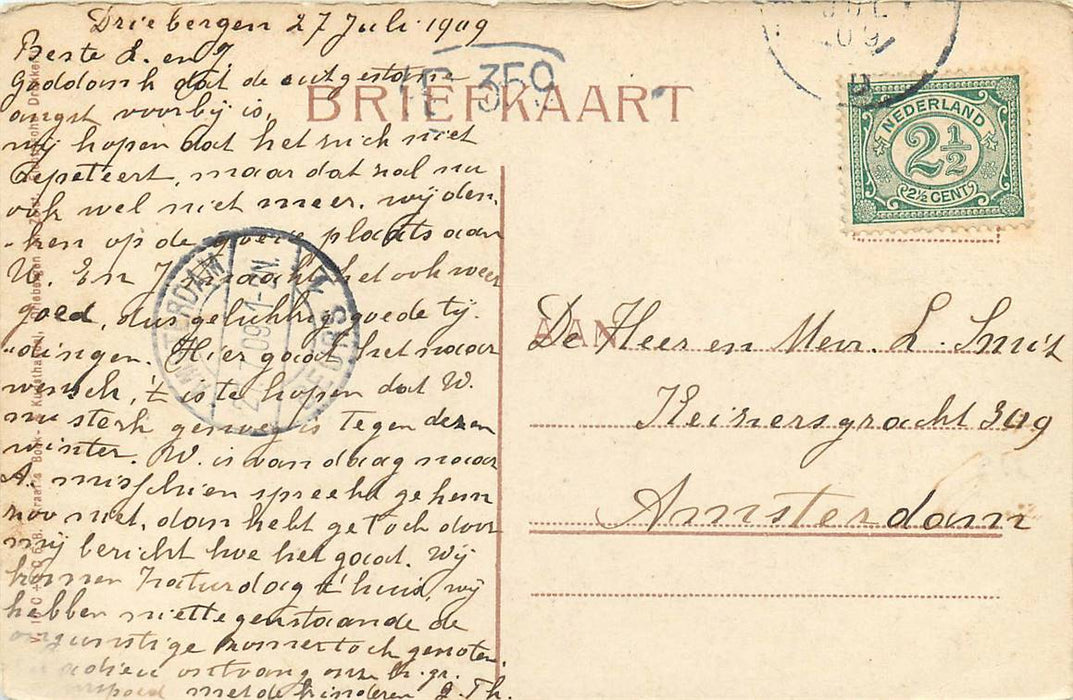 Driebergen 27 Juli 1909
Beste L. en J.
Goddank dat de uitgestane
angst voorbij is.
wij hopen dat het zich niet
repeteert, maar dat zal nu
ook wel niet meer, wij den-
-ken op de goeie plaats aan
W. En J. maakt het ook weer
goed, dus gelukkig goede tij-
dingen. Hier gaat het naar
wensch, 't is te hopen dat W.
nu sterk genoeg is tegen dezen
winter. W. is vandaag naar
A. misschien spreekt ge hem
zoo niet, dan hebt ge toch door
mij bericht hoe het gaat. Wij
komen Zaturdag t' huis, wij
hebben niettegenstaande de
ongunstige zomer toch genoten.
adieu ontvang onze h. gr.
met de kinderen J. Th.
BRIEFKAART
350
NEDERLAND
2½
2½ CENT
AMSTERDAM
AAN
De Heer en Mevr. L. Smit
Keizersgracht 349
Amsterdam